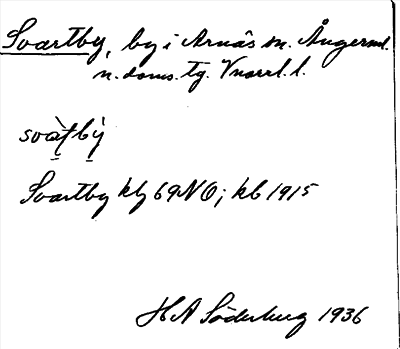 Svartby, by i Arnäs sn. Ångerml.
n. doms. tg. Vnorrl. l.
svàtbỳ
Svartby kbg 69NO; kb 1915
HA Söderberg 1936